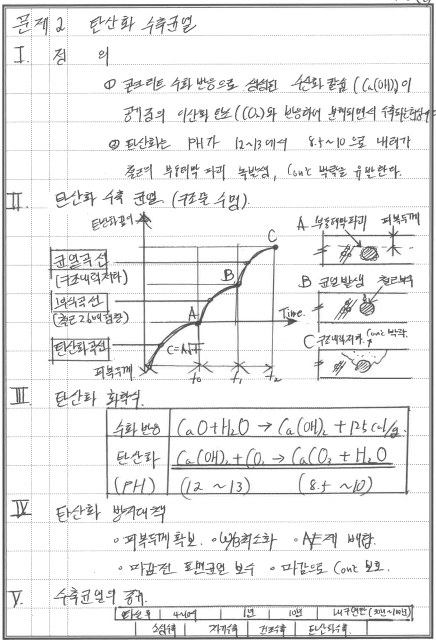 문제 2 탄산화 수축균열
I. 정 의
① 콘크리트 수화 반응으로 생성된 수산화칼슘 (Ca(OH)₂)이
공기중의 이산화탄소(CO₂)와 반응하여 분해되면서 수축되는현상
② 탄산화는 PH가 12~13에서 8.5~10으로 내려가
철근의 부동태막 파괴 녹발생, Conc 박락을 유발한다.
II. 탄산화 수축 균열 (구조물 수명).
탄산화깊이
균열곡선
(구조내력저하)
(철근 2.6배팽창)
탄산화곡선
피복두께
C=A√t
A
B
C
Time.
t₀ t₁ t₂
A 부동태막파괴 피복두께
B 균열발생 철근부식
C 구조내력저하, Conc 박락
III 탄산화 화학식.
수화 반응 CaO+H₂O → Ca(OH)₂ + 125 cal/g.
탄산화 Ca(OH)₂+CO₂ → CaCO₃ + H₂O
(PH) (12 ~ 13) (8.5 ~ 10)
IV 탄산화 방지대책
◦ 피복두께 확보. ◦ W/B최소화 ◦ AE제 배합.
◦ 마감전 표면균열 보수 ◦ 마감으로 Conc 보호.
V. 수축균열의 종류.
1년 10년 내구연한
소성수축 자기수축 건조수축 탄산화수축